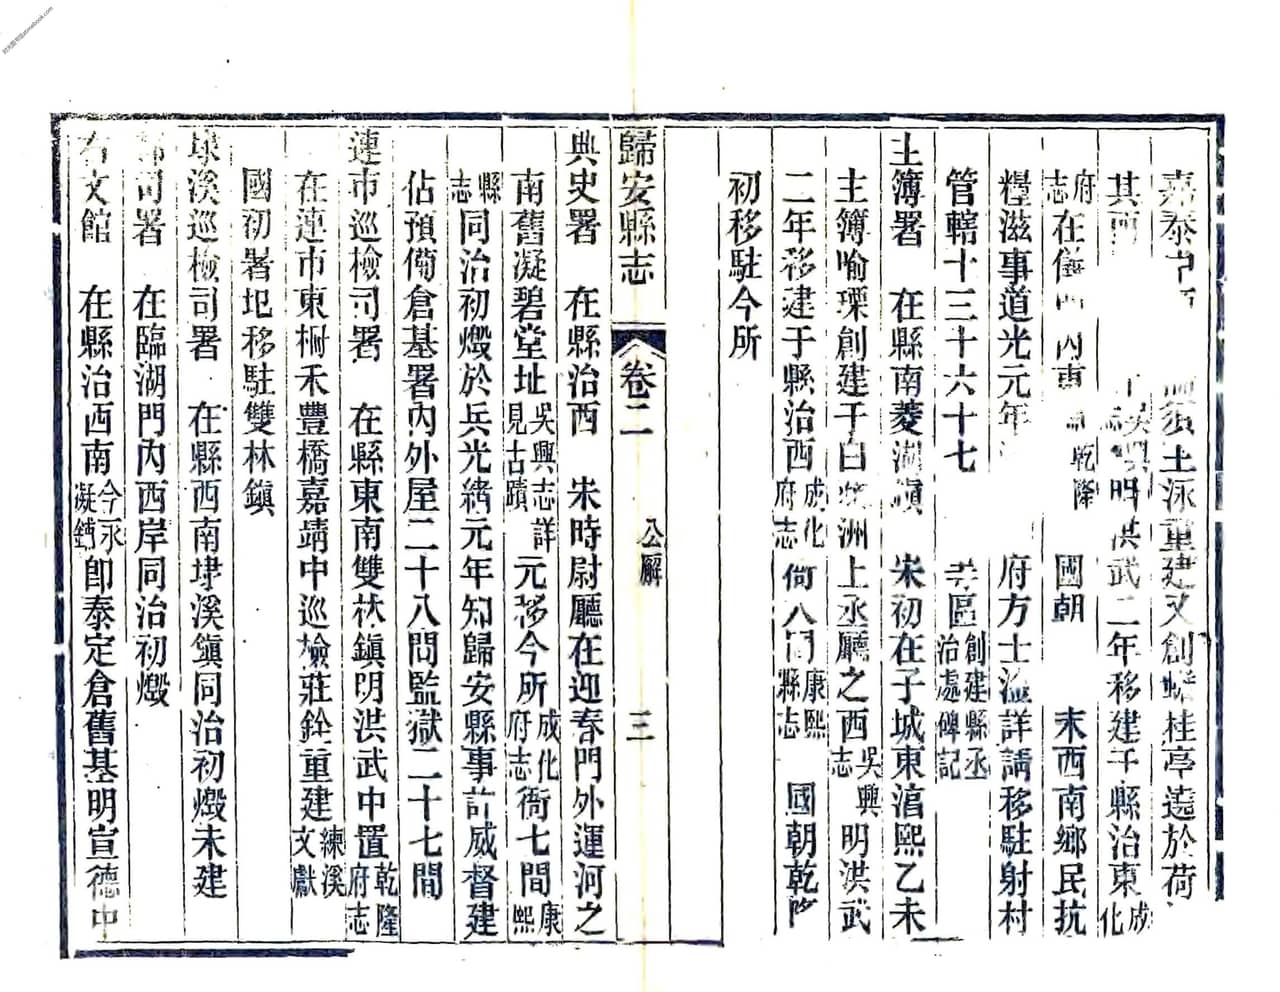 嘉泰中 土泳重建又創蟾桂亭遶於荷
其 吳興志明洪武二年移建于縣治東成化
府志在儀 內東 乾隆 國朝 末西南鄉民抗
糧滋事道光元年 府方士淦詳請移駐射村
管轄十三十六十七 區創建縣丞治處碑記
主簿署 在縣南菱湖鎮 宋初在子城東淳熙乙未
主簿喻㻫創建于白蘋洲上丞廳之西吳興志明洪武
二年移建于縣治西成化府志衙八間康熙縣志 國朝乾隆
初移駐今所
歸安縣志 卷二 公廨 三
典史署 在縣治西 宋時尉廳在迎春門外運河之
南舊凝碧堂址吳興志詳見古蹟元移今所成化府志衙七間康熙
縣志同治初燬於兵光緒元年知歸安縣事許威督建
佔預備倉基署內外屋二十八間監獄二十七間
連市巡檢司署 在縣東南雙林鎮明洪武中置乾隆府志
在連市東柵禾豐橋嘉靖中巡檢莊銓重建練溪文獻
國初署圮移駐雙林鎮
埭溪巡檢司署 在縣西南埭溪鎮同治初燬未建
都司署 在臨湖門內西岸同治初燬
右文館 在縣治西南今永凝鋪即泰定倉舊基明宣德中